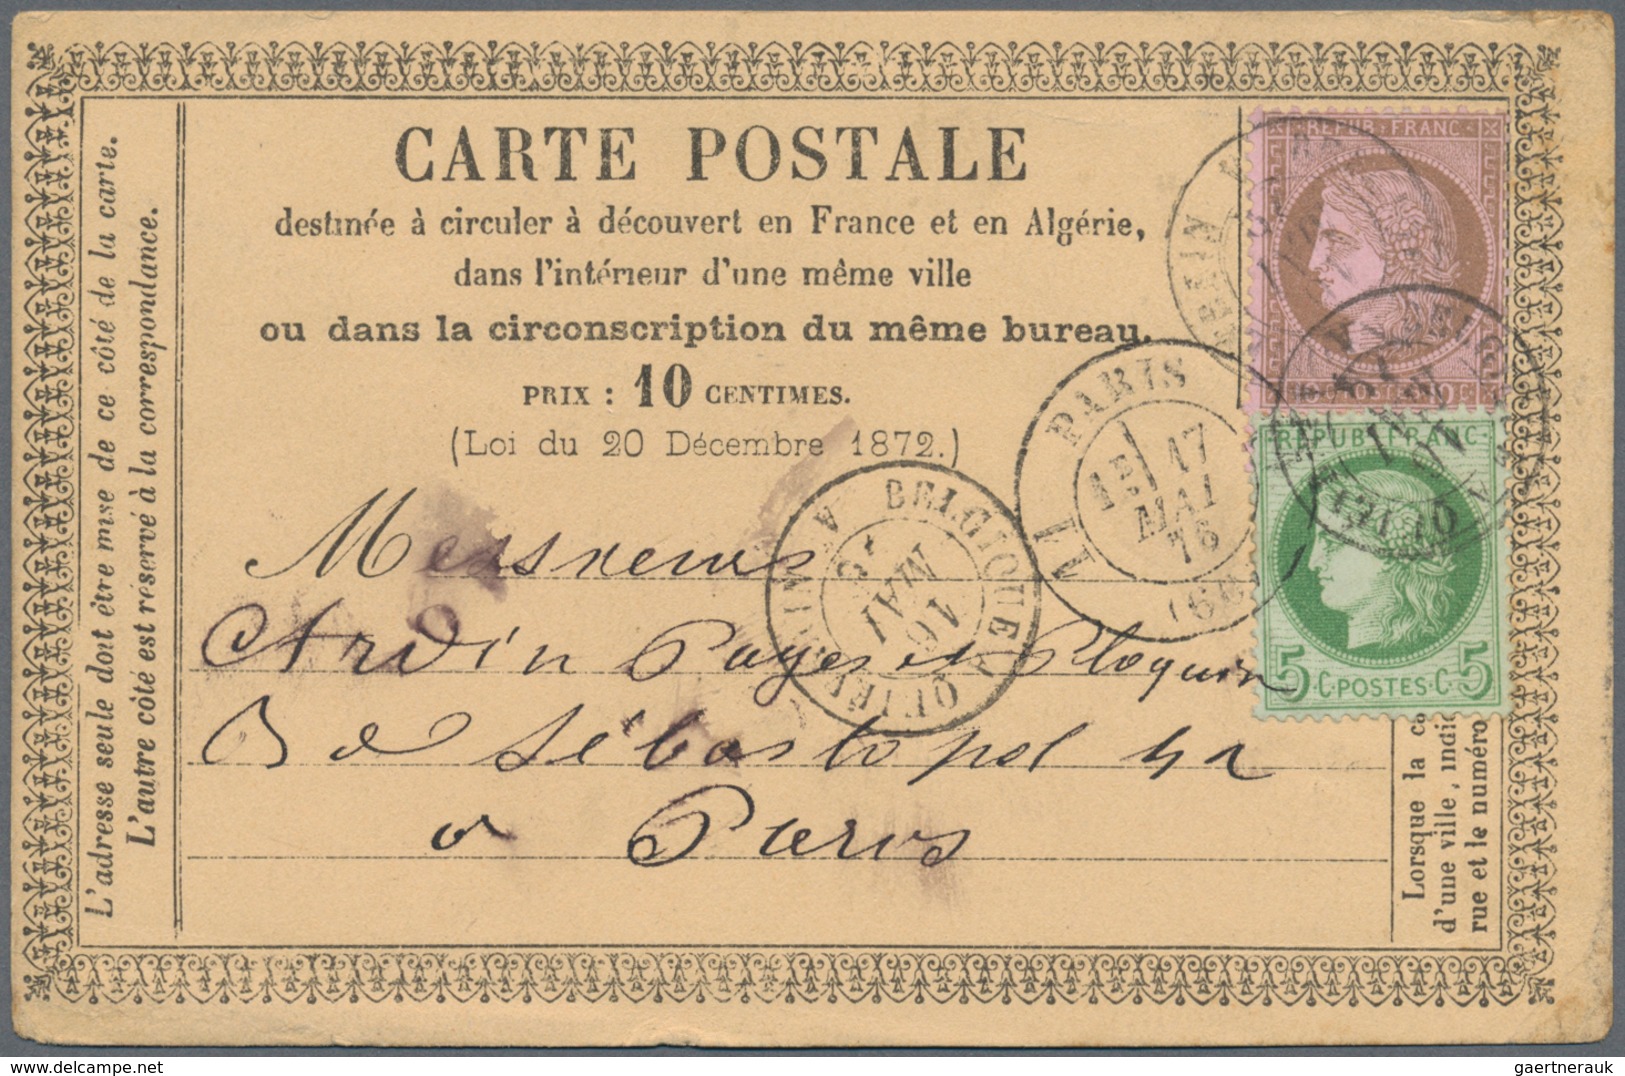 CARTE POSTALE
destinée à circuler à découvert en France et en Algérie,
dans l'intérieur d'une même ville
ou dans la circonscription du même bureau.
PRIX : 10 CENTIMES.
(Loi du 20 Décembre 1872.)
L'adresse seule doit être mise de ce côté de la carte.
L'autre côté est réservé à la correspondance.
REPUB · FRANC
REPUB · FRANC
5 C · POSTES · C 5
PARIS
17
MAI
75
(60)
BELGIQUE A
16
MAI
Messieurs
Ardin Payer et Ploquin
Bd Sébastopol 42
a Paris
Lorsque la ca
d'une ville, indi
rue et le numéro
gaertnerauk